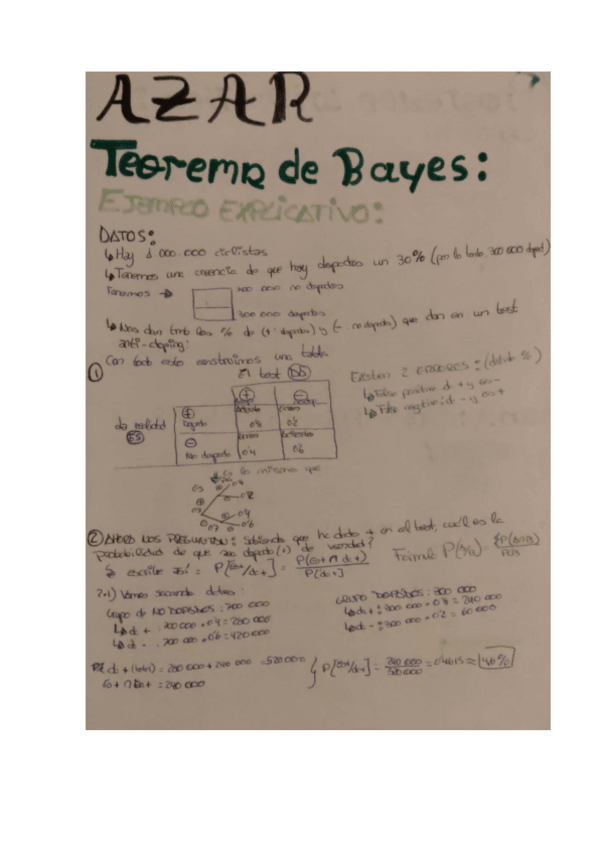 AZAR
Teorema de Bayes:
EJEMPLO EXPLICATIVO:
DATOS:
↳ Hay 1 000.000 ciclistas
↳ Tenemos una creencia de que hay dopados un 30% (por lo tanto 300 000 dopad)
Tenemos → 700 000 no dopados
300 000 dopados
↳ Nos dan tmb los % de (+: dopados) y (-: no dopados) que dan en un test
anti-doping:
① Con todo esto construimos una tabla
El test DA
Existen 2 ERRORES: (
↳ Falso positivo: d + y es -
↳ Falso negativo: d - y es +
⊕ ⊖
la realidad
ES
⊕ Dopado
Acierto 0'8
Error 0'2
⊖ No dopado
Error 0'4
Acierto 0'6
Es lo mismo que
0'3 ⊕ 0'8
⊖ 0'2
0'7 ⊕ 0'4
⊖ 0'6
② AHORA NOS PREGUNTAN: Sabiendo que ha dado + en el test, cuál es la
probabilidad de que sea dopado (+) de verdad?
Se escribe así: P[Es+/da+] = P(Es+ ∩ da+) / P[da+]
2.1) Vamos sacando datos:
Grupo de NO DOPADOS: 700 000
↳ d + : 700000 × 0'4 = 280 000
↳ d - : 700 000 × 0'6 = 420 000
GRUPO DOPADOS: 300 000
↳ da + : 300 000 × 0'8 = 240 000
↳ da - : 300 000 × 0'2 = 60 000
da + (total) = 280 000 + 240 000 = 520 000
Es+ ∩ da+ = 240 000
P[Es+/da+] = 240 000 / 520 000 = 0'4615 ≈ 46%